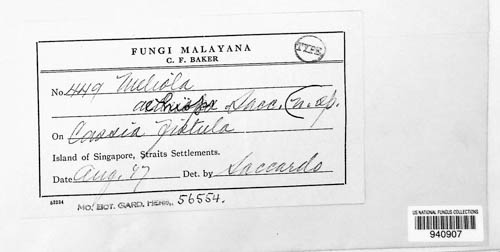 FUNGI MALAYANA
C. F. BAKER
TYPE
No. 449 Meliola
Sacc. n. sp.
On Cassia fistula
Island of Singapore, Straits Settlements.
Date Aug. '17 Det. by Saccardo
52224
MO. BOT. GARD. HERB., 56554.
US NATIONAL FUNGUS COLLECTIONS
940907